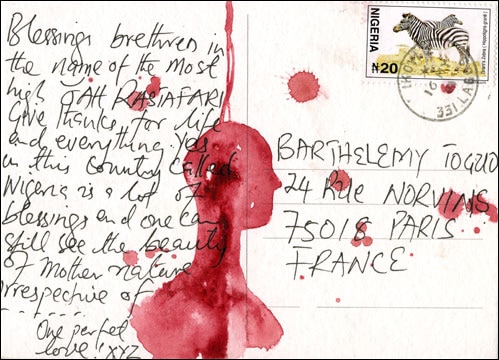 Blessings brethren in
the name of the most
high JAH RASTAFARI
Give thanks for life
and everything. Yes
in this country called
Nigeria is a lot of
blessings and one can
still see the beauty
of mother nature
irrespective of
- - - - - -
One perfect
love! XYZ
NIGERIA
₦20
BARTHELEMY TOGUO
24 Rue NORVINS
75018 PARIS
FRANCE